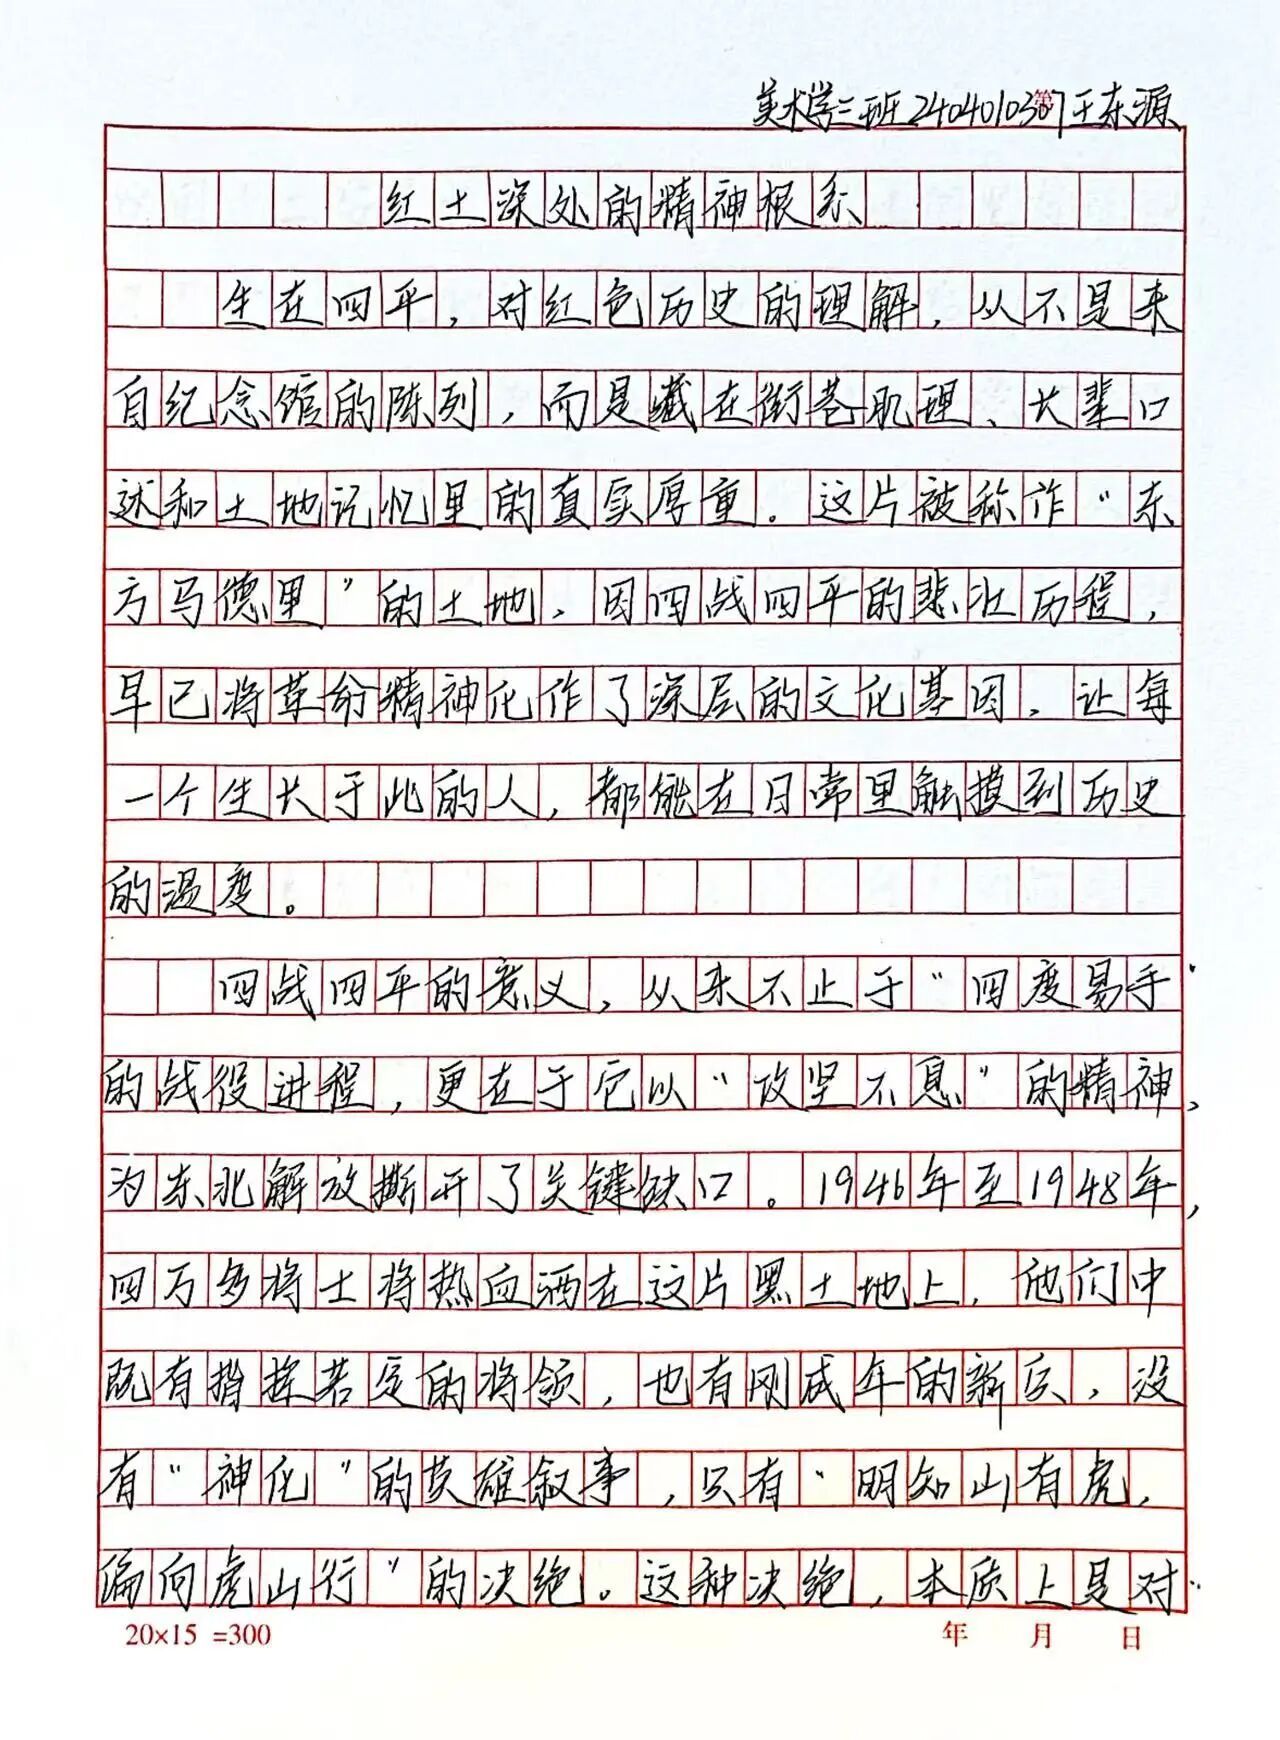 美术学三班2404010307王东源
红土深处的精神根系
生在四平，对红色历史的理解，从不是来
自纪念馆的陈列，而是藏在街巷肌理、长辈口
述和土地记忆里的真实厚重。这片被称作“东
方马德里”的土地，因四战四平的悲壮历程，
早已将革命精神化作了深层的文化基因，让每
一个生长于此的人，都能在日常里触摸到历史
的温度。
四战四平的意义，从来不止于“四度易手”
的战役进程，更在于它以“攻坚不息”的精神，
为东北解放撕开了关键缺口。1946年至1948年，
四万多将士将热血洒在这片黑土地上，他们中
既有指挥若定的将领，也有刚成年的新兵，没
有“神化”的英雄叙事，只有“明知山有虎，
偏向虎山行”的决绝。这种决绝，本质上是对
20×15 =300 年 月 日